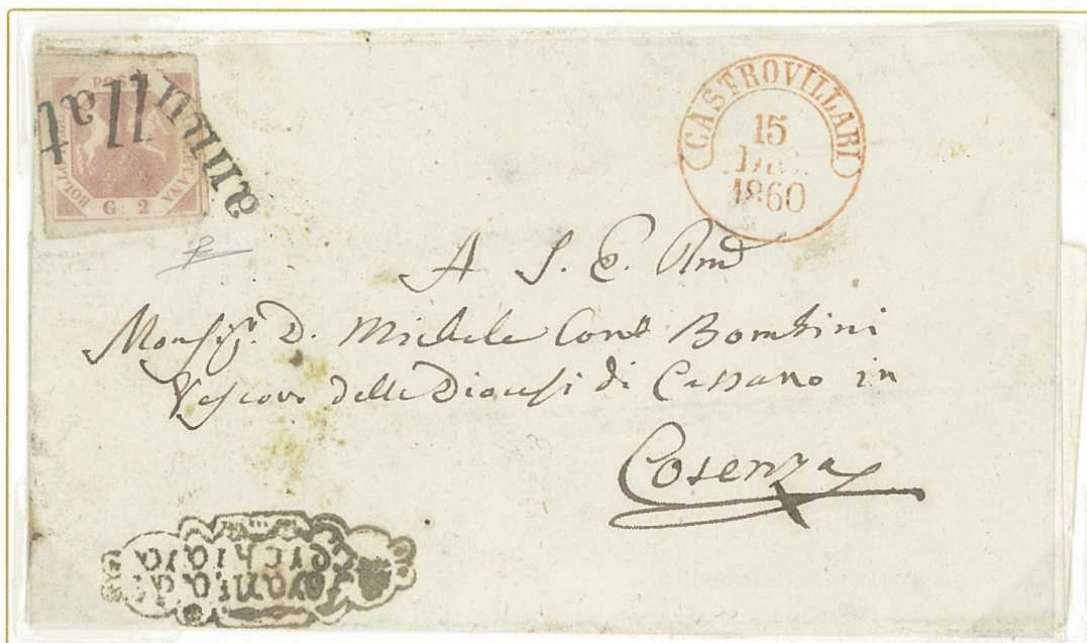 annullat
G. 2
CASTROVILLARI
15
DIC.
1860
A S. E. Rmà
Monsigr. D. Michele Conte Bombini
Vescovo della Diocesi di Cassano in
Cosenza
di
Cerchiara